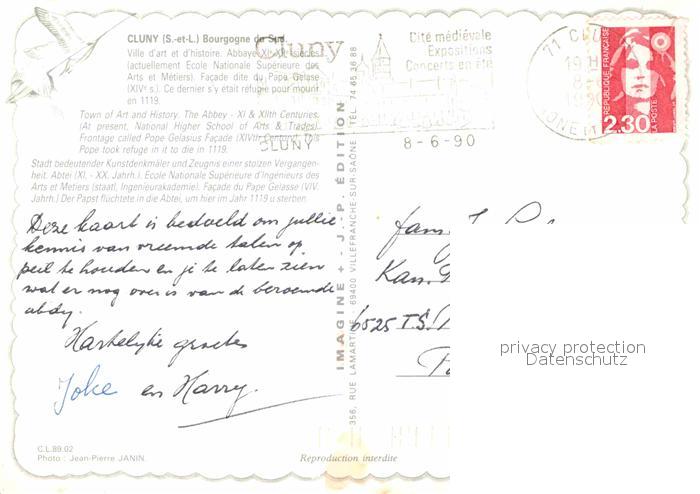 CLUNY (S.-et-L.) Bourgogne du Sud.
Ville d'art et d'histoire. Abbaye XI-XIIe siècles
(actuellement Ecole Nationale Supérieure des
Arts et Métiers). Façade dite du Pape Gelase
(XIVe s.). Ce dernier s'y était réfugié pour mourir
en 1119.
Town of Art and History. The Abbey - XI & XIIth Centuries.
(At present, National Higher School of Arts & Trades).
Frontage called Pope Gelasius Façade (XIVth Century). This
Pope took refuge in it to die in 1119.
Stadt bedeutender Kunstdenkmäler und Zeugnis einer stolzen Vergangen-
heit. Abtei (XI. - XX. Jahrh.). Ecole Nationale Supérieure d'Ingénieurs des
Arts et Metiers (staatl. Ingenieurakademie). Façade du Pape Gelasse (XIV.
Jahrh.) Der Papst flüchtete in die Abtei, um hier im Jahr 1119 u sterben.
Cluny
Cité médiévale
Expositions
Concerts en été
CLUNY
8-6-90
71 CLUNY
19 H
8-6
1990
SAONE ET
REPUBLIQUE FRANÇAISE
LA POSTE
2,30
Deze kaart is bedoeld om jullie
kennis van vreemde talen op
peil te houden en je te laten zien
wat er nog over is van de beroemde
abdy.
Hartelijke groetes
Joke en Harry.
IMAGINE + - J.-P. ÉDITION
356, RUE LAMARTINE - 69400 VILLEFRANCHE-SUR-SAÔNE - TÉL. 74 65 36 88
fam
Kan.
6525 T.S.
privacy protection
Datenschutz
C.L.89.02
Photo : Jean-Pierre JANIN.
Reproduction interdite